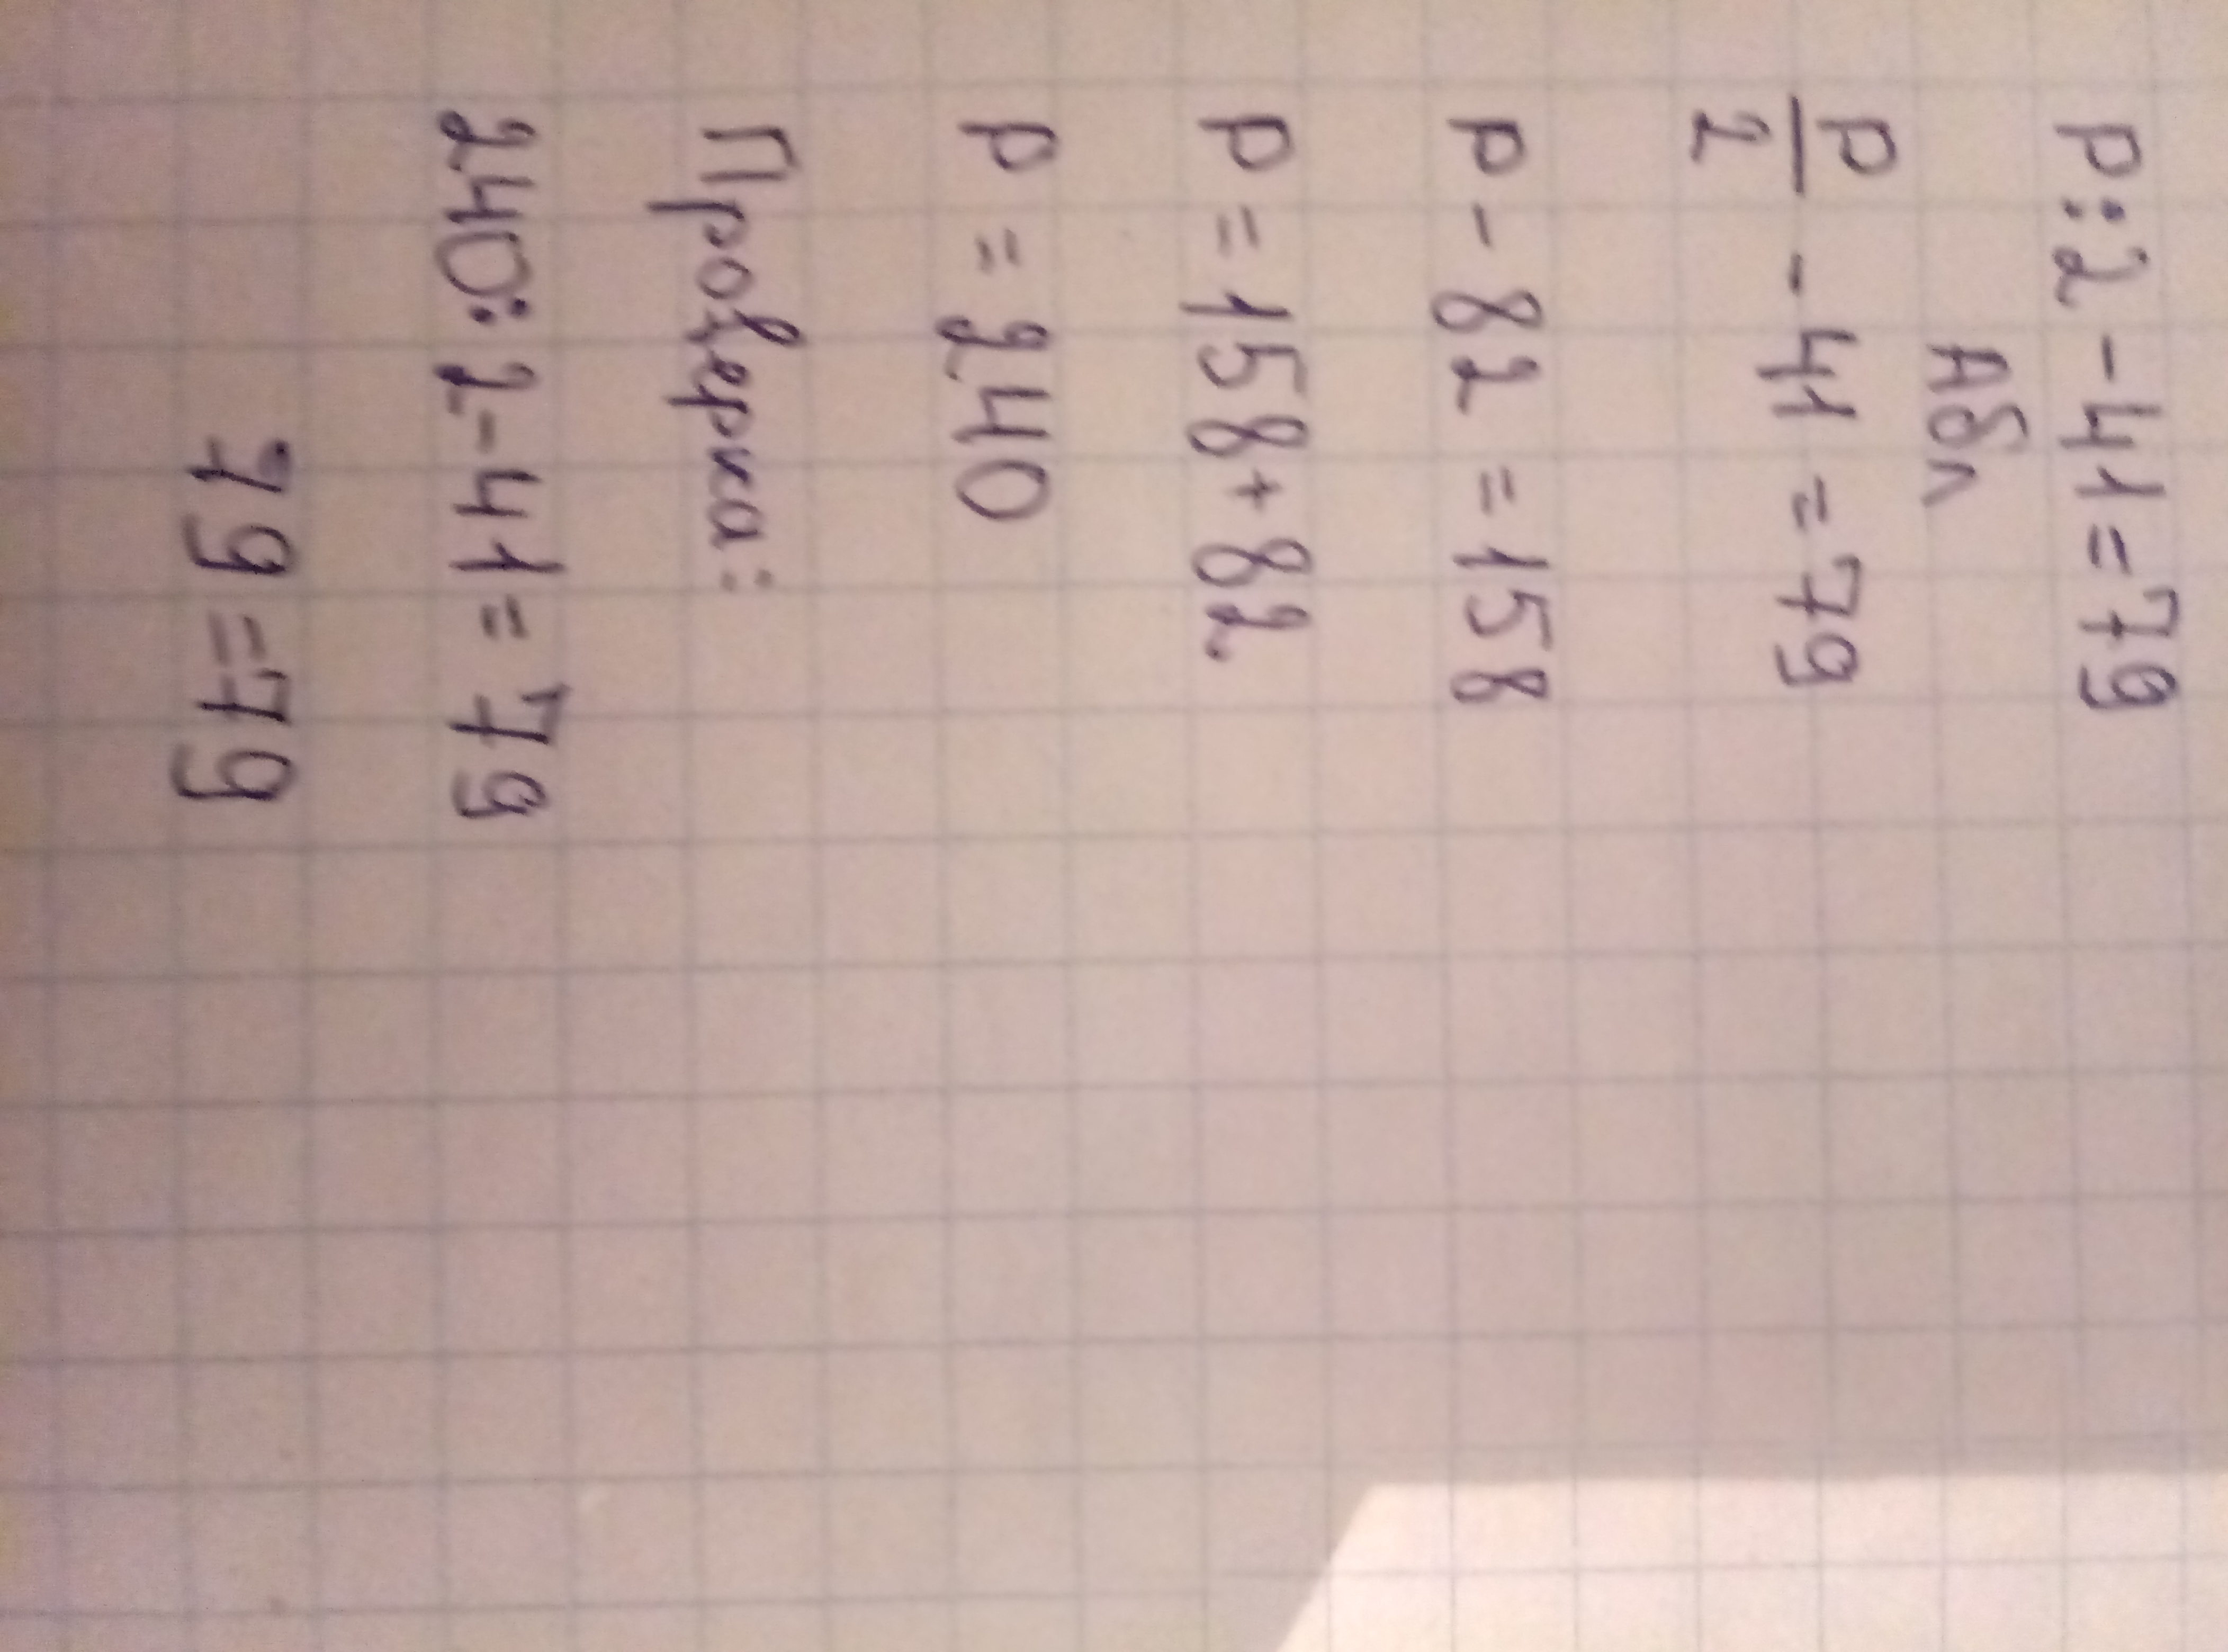 p:2-41=79
Абл
p/2 - 41 = 79
p - 82 = 158
p = 158 + 82
p = 240
Проверка:
240:2-41=79
79=79